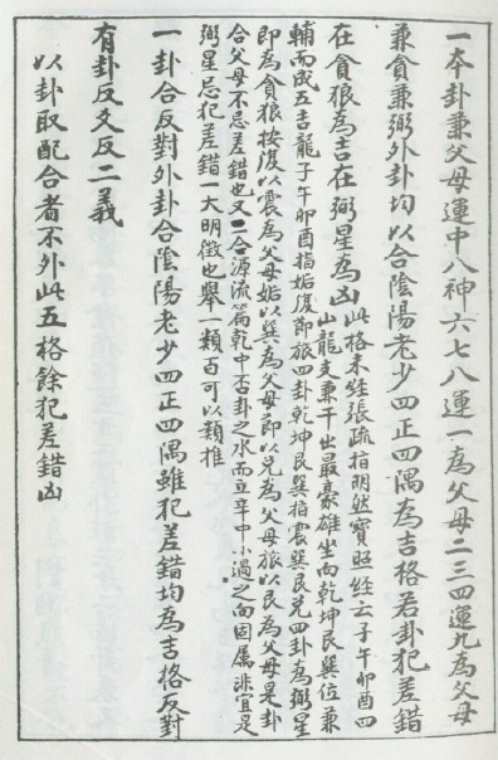 一本卦兼父母運中八神六七八運一為父母二三四運九為父母
兼貪兼弼外卦均以合陰陽老少四正四隅為吉格若卦犯差錯
在貪狼為吉在弼星為凶此格未經張疏指明然寶照經云子午卯酉四
山龍支兼干出最豪雄坐向乾坤艮巽位兼
輔而成五吉龍子午卯酉指姤復節旅四卦乾坤艮巽指震巽艮兌四卦為弼星
即為貪狼按復以震為父母姤以巽為父母節以兌為父母旅以艮為父母是卦
合父母不忌差錯也又二合源流篇乾中否卦之水而立辛中小過之向固属非宜是
弼星忌犯差錯一大明徵也舉一類百可以類推
一卦合反對外卦合陰陽老少四正四隅雖犯差錯均為吉格反對
有卦反爻反二義
以卦取配合者不外此五格餘犯差錯凶